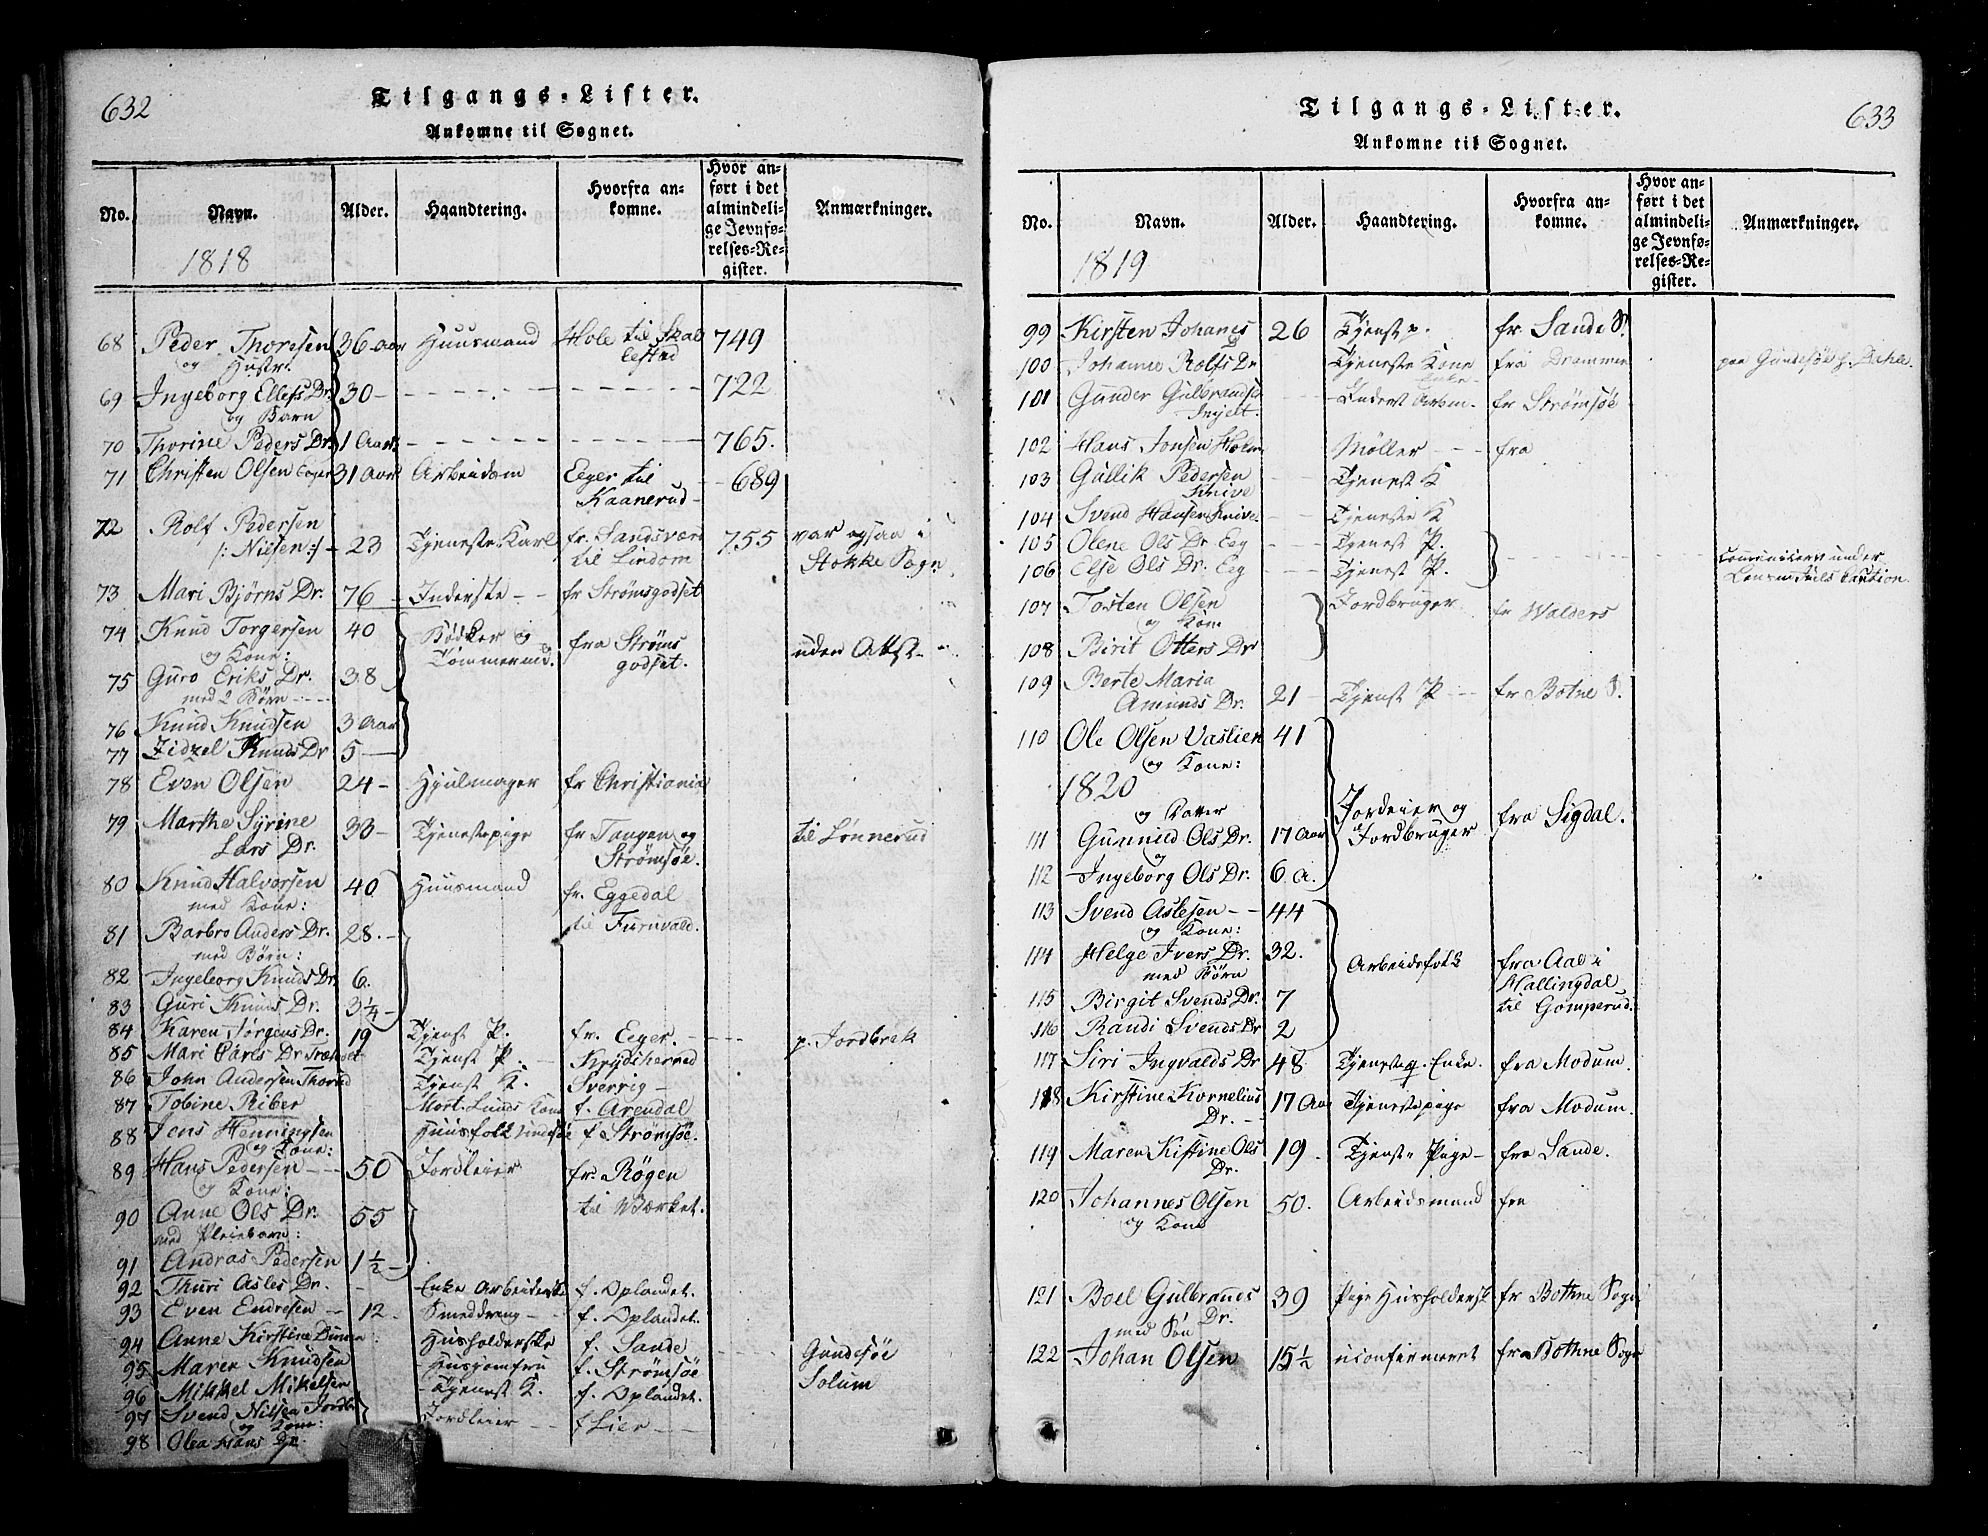 632
Tilgangs-Lister.
Ankomne til Sognet.
No. Navn. Alder. Haandtering. Hvorfra ankomne. Hvor anført i det almindelige Jevnførelses-Register. Anmærkninger.
1818
68 Peder Thoresen 36 Aar Huusmand Hole til Skallestad 749
og Hustr.
69 Ingeborg Ellefs Dr. 30 - 722
og Barn
70 Thorine Peders Dr. 1 Aar 765.
71 Christen Olsen 31 Aar Arbeidsm Eeger til Kaanerud 689
72 Rolf Pedersen
/: Nilsen :/ 23 Tjeneste Karl fr. Sandsværd til Lindom 755 var ogsaa i Stokke Sogn
73 Mari Bjørns Dr. 76 - Inderste - fr Strømsgodset
74 Knud Torgersen 40 Bødker og Tømmermd. fra Strømsgodset. uden Attst -
og Kone:
75 Guro Eriks Dr. 38
med 2 Børn
76 Knud Knudsen 3 Aar
77 Zidzel Knuds Dr 5 -
78 Even Olsen 24 - Hjulmager fr Christiania
79 Marthe Syrine
Lars Dr. 36 - Tjenestepige fr Tangen og Strømsøe. til Lønnerud
80 Knud Halvorsen 40 Huusmand fr. Eggedal
med Kone: til Furuvald.
81 Barbro Anders Dr. 28. -
med Børn:
82 Ingeborg Knuds Dr 6.
83 Guri Knuds Dr. 3 1/4 -
84 Karen Jørgens Dr. 19 Tjenst P. fr. Eeger. p. Jordbrek
85 Mari Carls Dr Tjenst P. Krydsherred
86 John Andersen Thorud Tjenst K. Sverrig -
87 Tobine Riber Mort. Lunds Kone f. Arendal
88 Jens Henningsen Huusfolk f. Strømsøe.
og Kone:
89 Hans Pedersen 50 Jordleier fr. Røgen
og Kone: til Værket.
90 Anne Ols Dr. 55
med Pleiebarn:
91 Andras Pedersen 1 1/2 -
92 Thuri Asles Dr. - Enke Arbeiderske f. Oplandet.
93 Even Endresen - 12. Smeddreng - f. Oplandet.
94 Anne Kirstine Husholderske f. Sande
95 Maren Knudsen - Husjomfru f. Strømsøe Gundesøe
96 Mikkel Mikelsen - Tjenest K. f. Oplandet. Solum
97 Svend Nilsen Jordleier - f Lier -
og Kone:
98 Olea Hans Dr
633
Tilgangs-Lister.
Ankomne til Sognet.
No. Navn. Alder. Haandtering. Hvorfra ankomne. Hvor anført i det almindelige Jevnførelses-Register. Anmærkninger.
1819
99 Kirsten Johanes D 26 Tjenst p. fr. Sande S.
100 Johanne Rolfs Dr Tjeneste Kone fra Drammen paa Gundesøe
101 Gunder Gulbrandsen Inderst Arbm. fr Strømsøe
Ingelt.
102 Hans Jonsen Holm Møller - fra
103 Gullik Pedersen Tjenest K
Knive
104 Svend Hansen Knive Tjeneste K
105 Olene Ols Dr Eeg Tjenest P.
106 Else Ols Dr. Eeg Tjenest P. under Lensmd. Caution.
107 Tosten Olsen Jordbruger fr Walders
og Kone
108 Birit Otters Dr
109 Berte Maria
Amunds Dr. 21 - Tjenst P - fr Botne S.
110 Ole Olsen Vaslien 41
og Kone:
1820
og Døtter Jordeier og Jordbruger fra Sigdal.
111 Gunnild Ols Dr. 17 Aar
og
112 Ingeborg Ols Dr. 6 a.
113 Svend Aslesen - - 44
og Kone:
114 Helge Ivers Dr. 32. Arbeidsfolk fra Aal i Hallingdal til Gomperud.
med Børn
115 Birgit Svends Dr. 7
116 Randi Svends Dr 2
117 Siri Ingvalds Dr 48 Tjenesteq. Enke. fra Modum.
118 Kirstine Kornelius Dr. - 17 Aar Tjenestepige fra Modum.
119 Maren Kistine Ols Dr. 19 Tjenst- Pige - fra Sande.
120 Johannes Olsen 50. Arbeidsmand fra
og Kone
121 Boel Gulbrands Dr. 39 Pige Husholdersk fr Bothne Sogn
med Søn
122 Johan Olsen 15 1/2 uconfirmeret fra Bothne Sogn